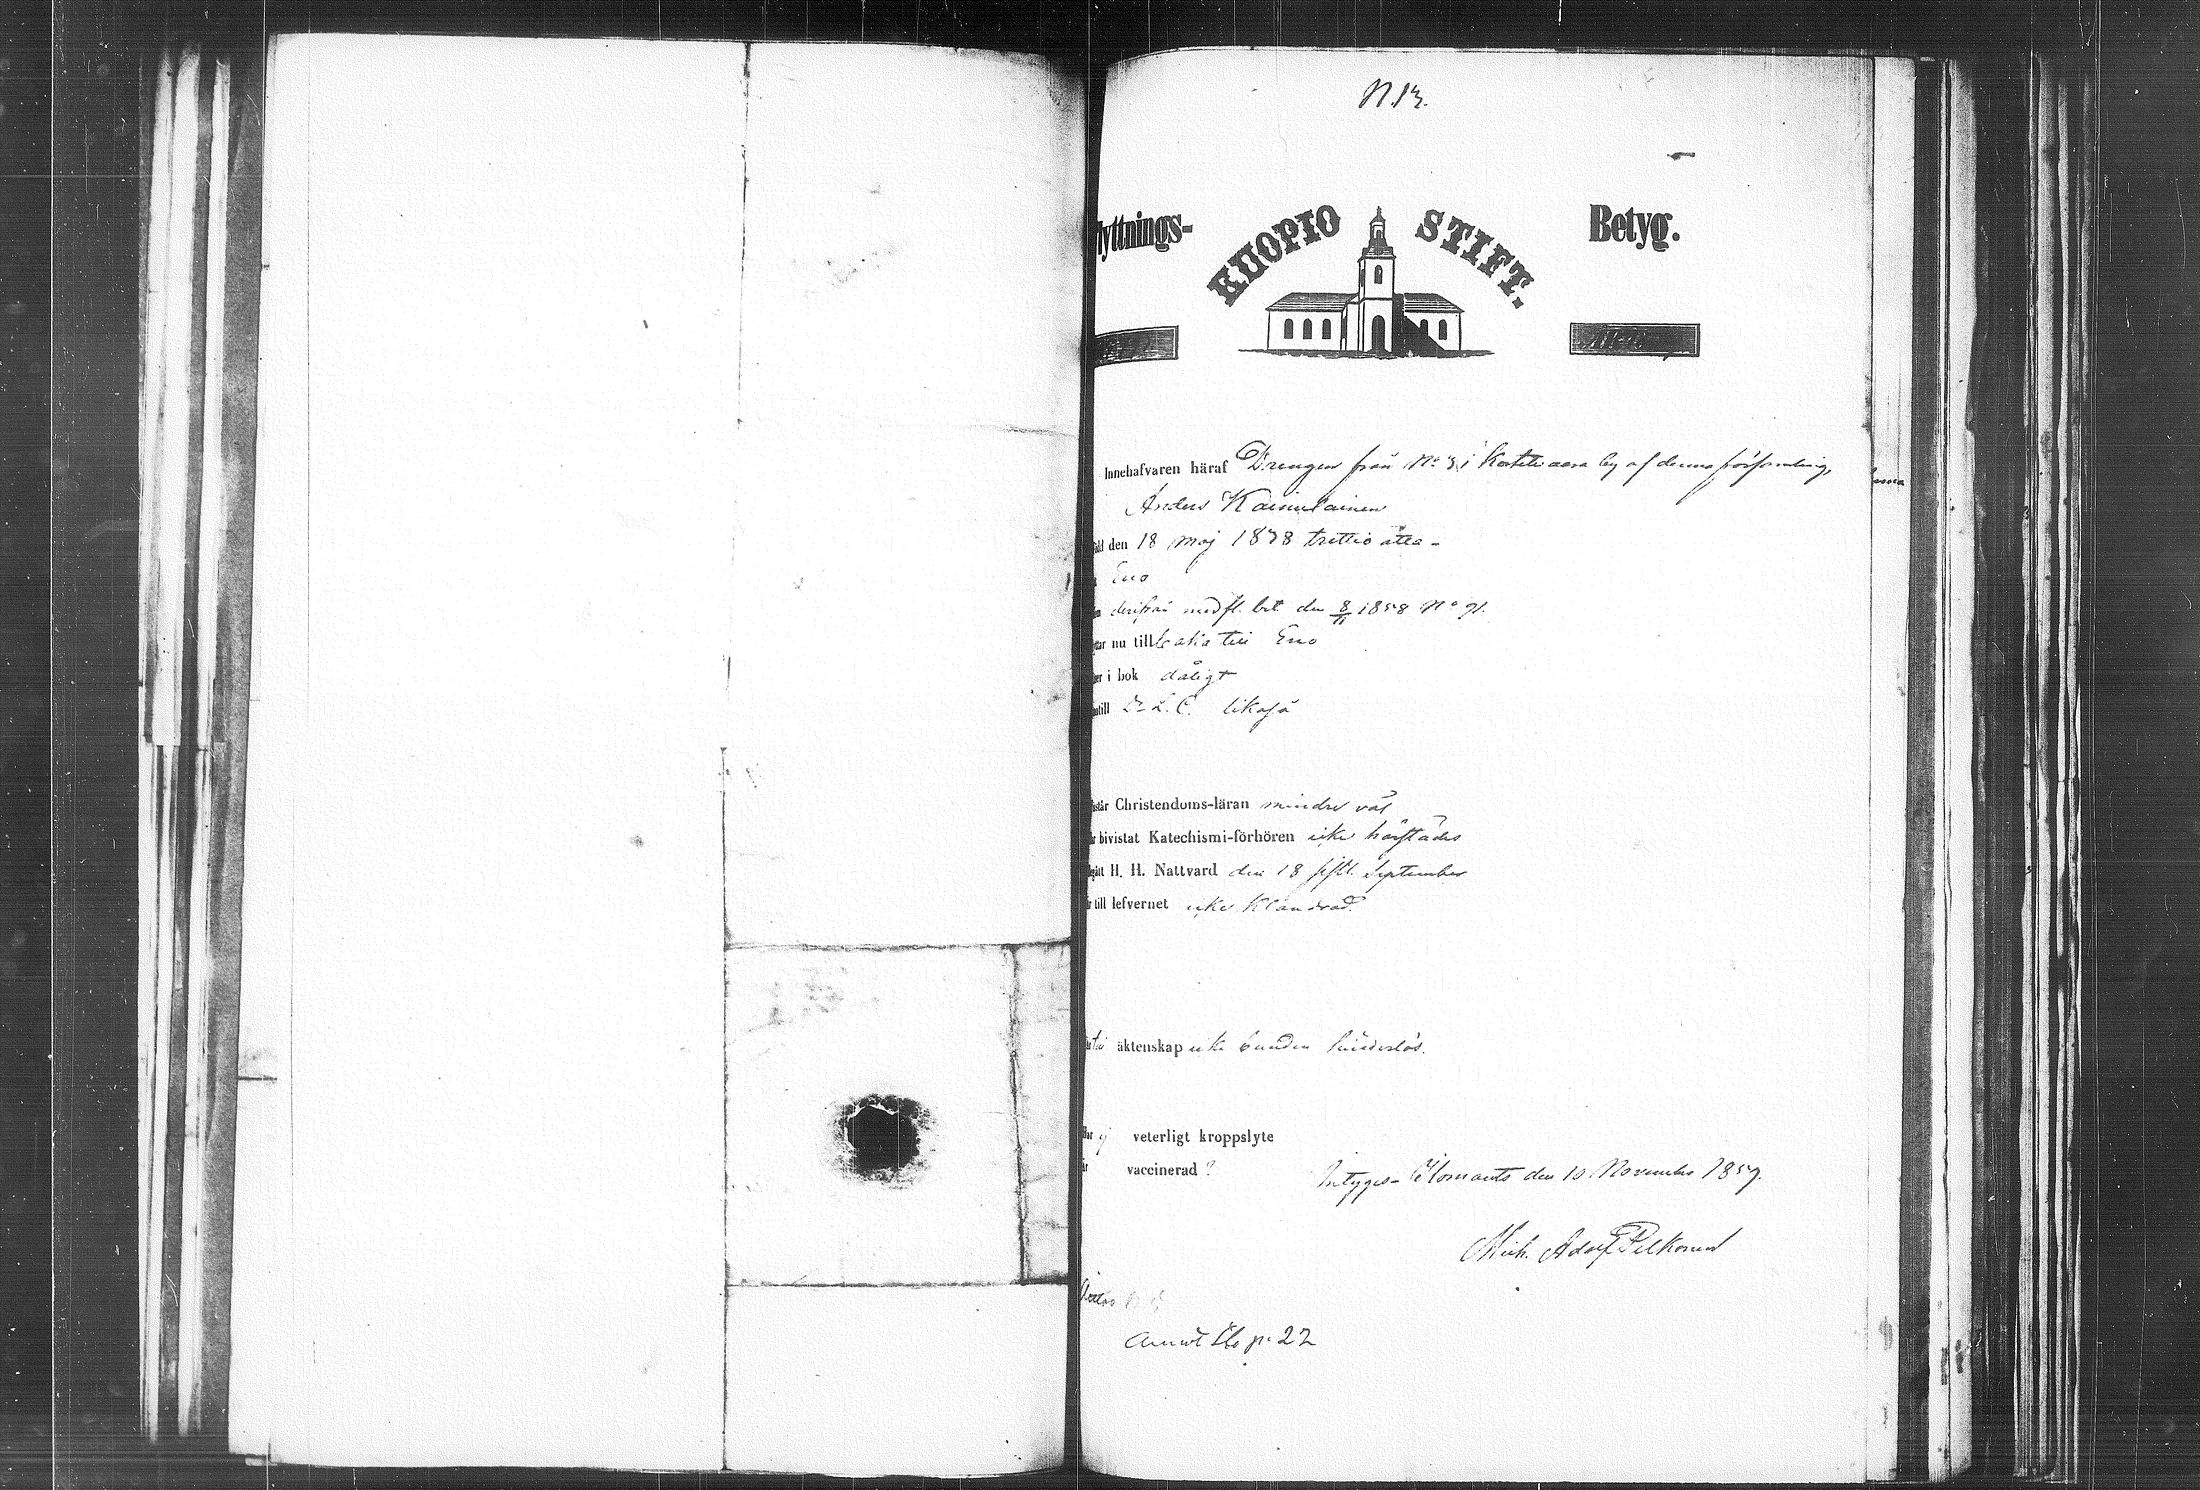 N. 13.
lyttnings-
KUOPIO STIFT.
Betyg.
Innehafvaren häraf Drengen från No 3 i Kortevaara by af denna församling,
Anders Kaimulainen
den 18 Maj 1838 trettio åtta -
Eno
derifrån med fl. bet. den 8/11 1858 No 91.
nu till baka till Eno
i bok dåligt
till Dr L. C. likaså
Christendoms-läran mindre väl
bivistat Katechismi-förhören icke härstädes
H. H. Nattvard den 18 sistl. September
till lefvernet icke klandrad.
äktenskap icke bunden hinderlös.
ej veterligt kroppslyte
vaccinerad ?
Intygas- Ilomants den 10 November 1859.
Mich. Adolf Pelkonen
p. 22